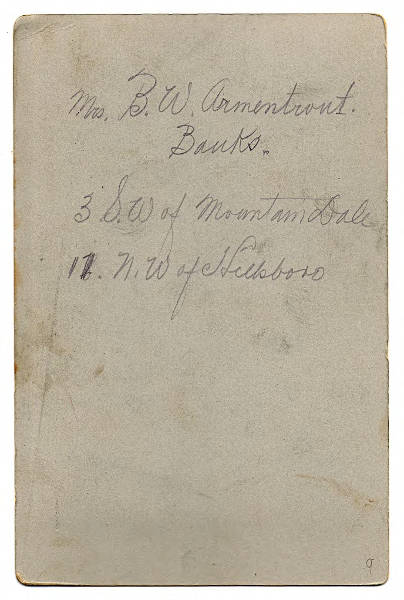 Mrs. B. W. Armentrout.
Banks.
3 S. W of Mountain Dale
11. N. W of Hillsboro
9